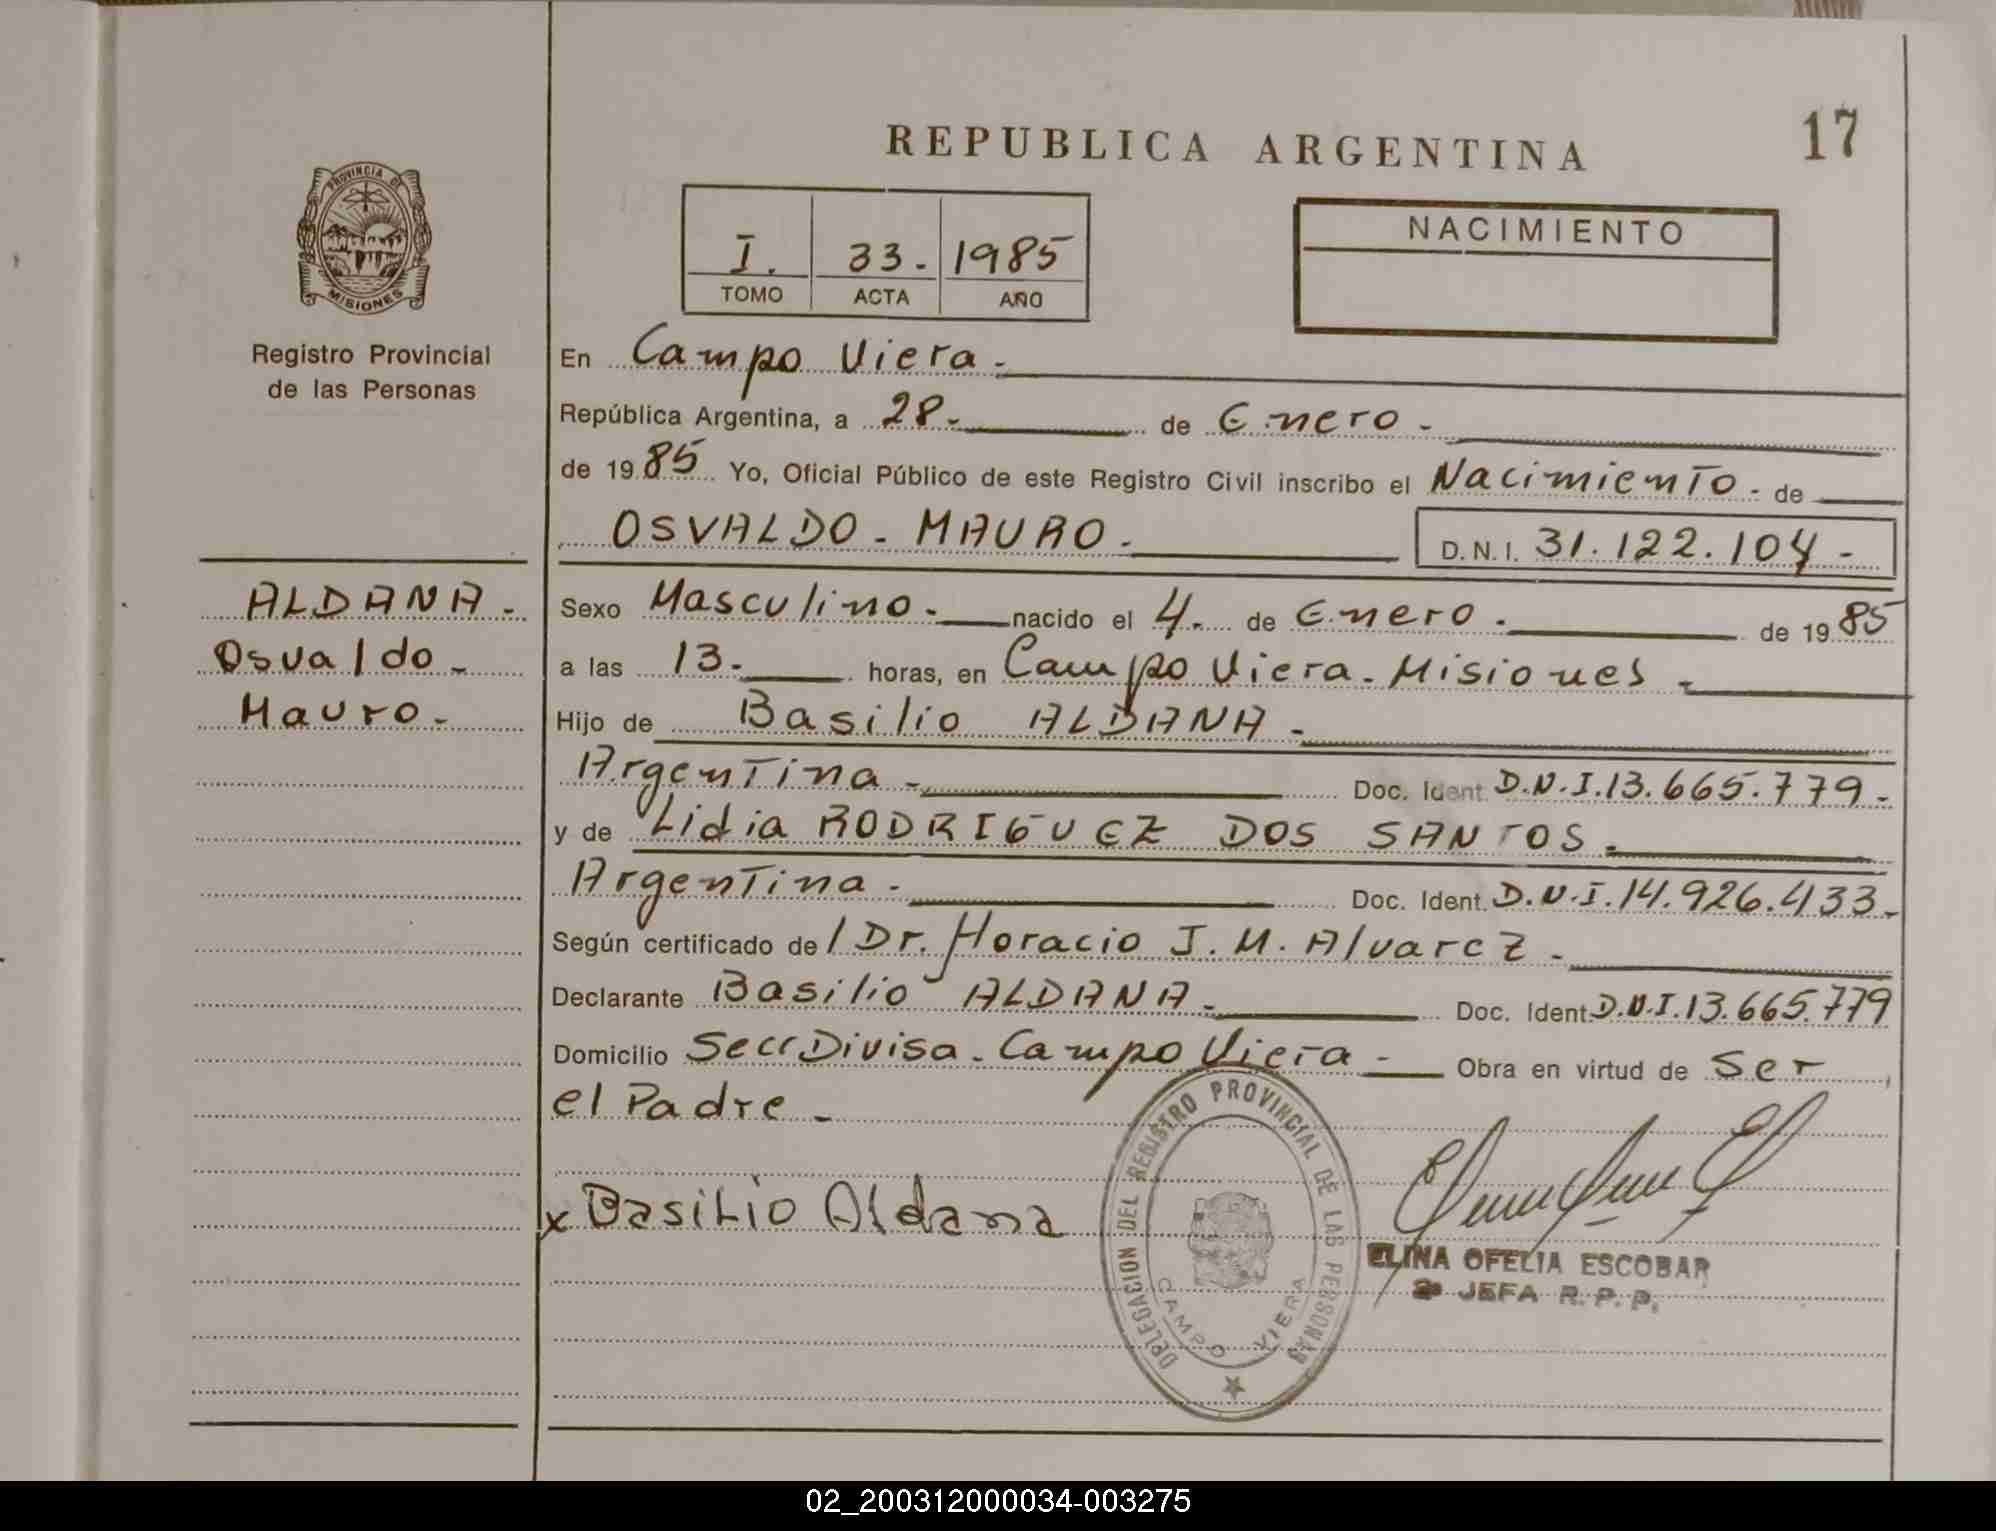 REPUBLICA ARGENTINA
17
PROVINCIA DE
MISIONES
Registro Provincial
de las Personas
I. 33. 1985
TOMO ACTA AÑO
NACIMIENTO
En Campo Viera.
República Argentina, a 28. de Enero.
de 1985 Yo, Oficial Público de este Registro Civil inscribo el Nacimiento. de
OSVALDO - MAURO. D.N.I. 31.122.104.
ALDANA.
Osvaldo.
Mauro.
Sexo Masculino. nacido el 4. de Enero. de 1985
a las 13. horas, en Campo Viera. Misiones.
Hijo de Basilio ALDANA.
Argentina. Doc. Ident. D.N.I.13.665.779.
y de Lidia RODRIGUEZ DOS SANTOS.
Argentina. Doc. Ident. D.N.I.14.926.433.
Según certificado del Dr. Horacio J. M. Alvarez.
Declarante Basilio ALDANA. Doc. Ident. D.N.I.13.665.779
Domicilio Divisa. Campo Viera. Obra en virtud de Ser
el Padre.
x Basilio Aldana
DELEGACION DEL REGISTRO PROVINCIAL DE LAS PERSONAS
CAMPO VIERA
ELINA OFELIA ESCOBAR
JEFA R. P. P.
02_200312000034-003275